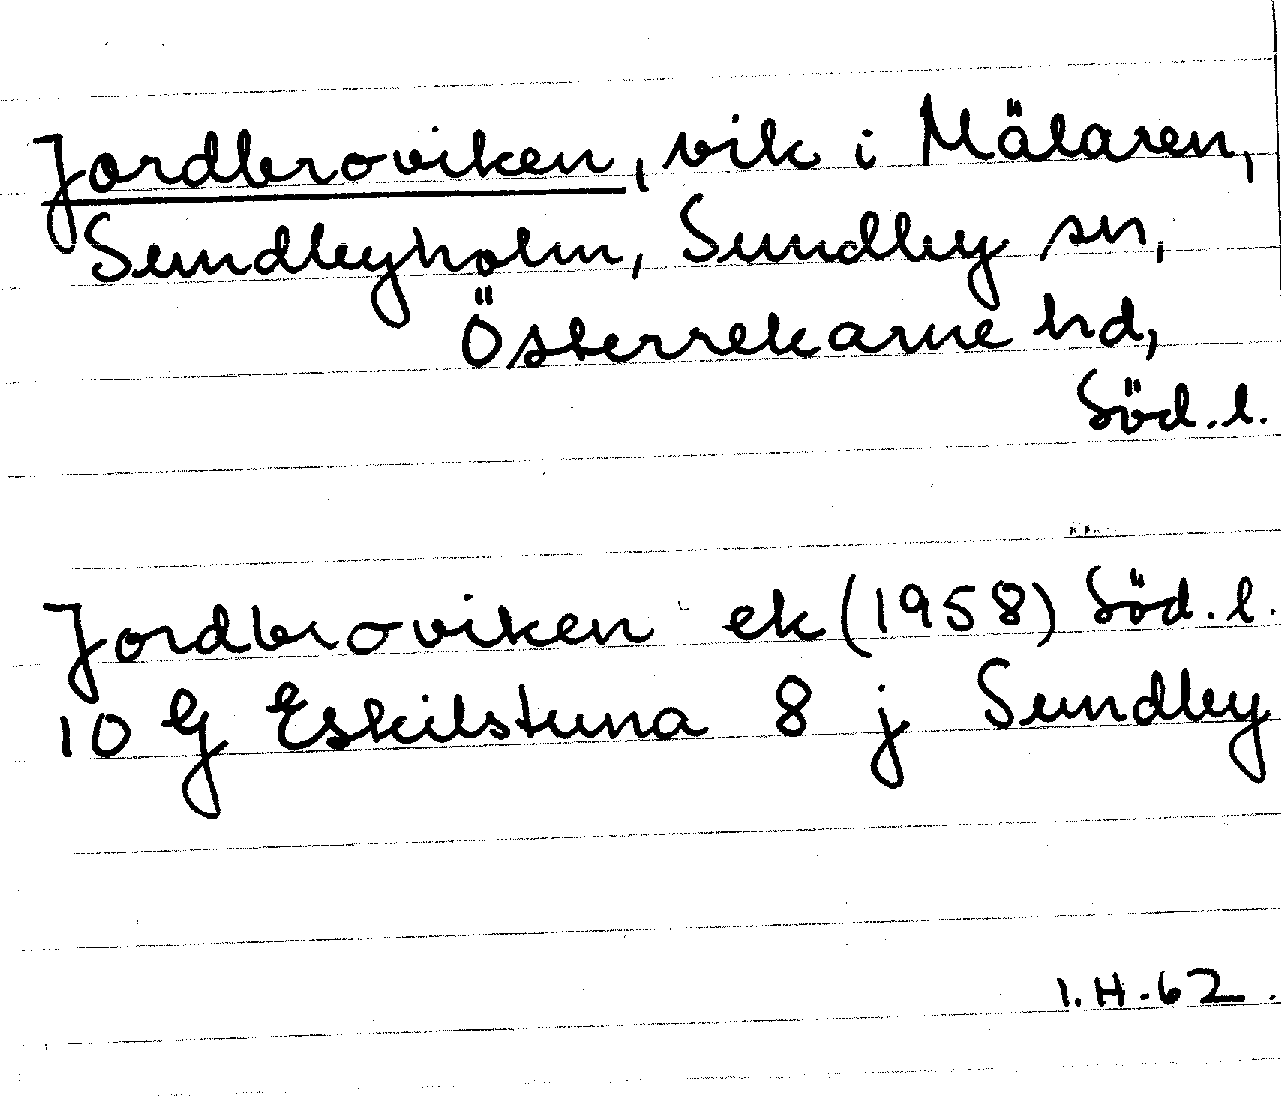 Jordbroviken, vik i Mälaren,
Sundbyholm, Sundby sn,
Österrekarne hd,
Söd. l.
Jordbroviken ek (1958) Söd. l.
10 G Eskilstuna 8 j Sundby
I. H. 62.